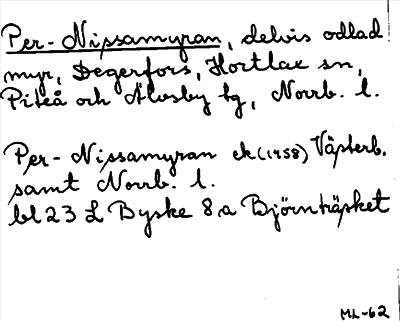 Per-Nissamyran, delvis odlad
myr, Degerfors, Hortlax sn,
Piteå och Älvsby tg, Norrb. l.
Per-Nissamyran ek (1958) Västerb.
samt Norrb. l.
bl 23 L Byske 8a Björnträsket
ML-62